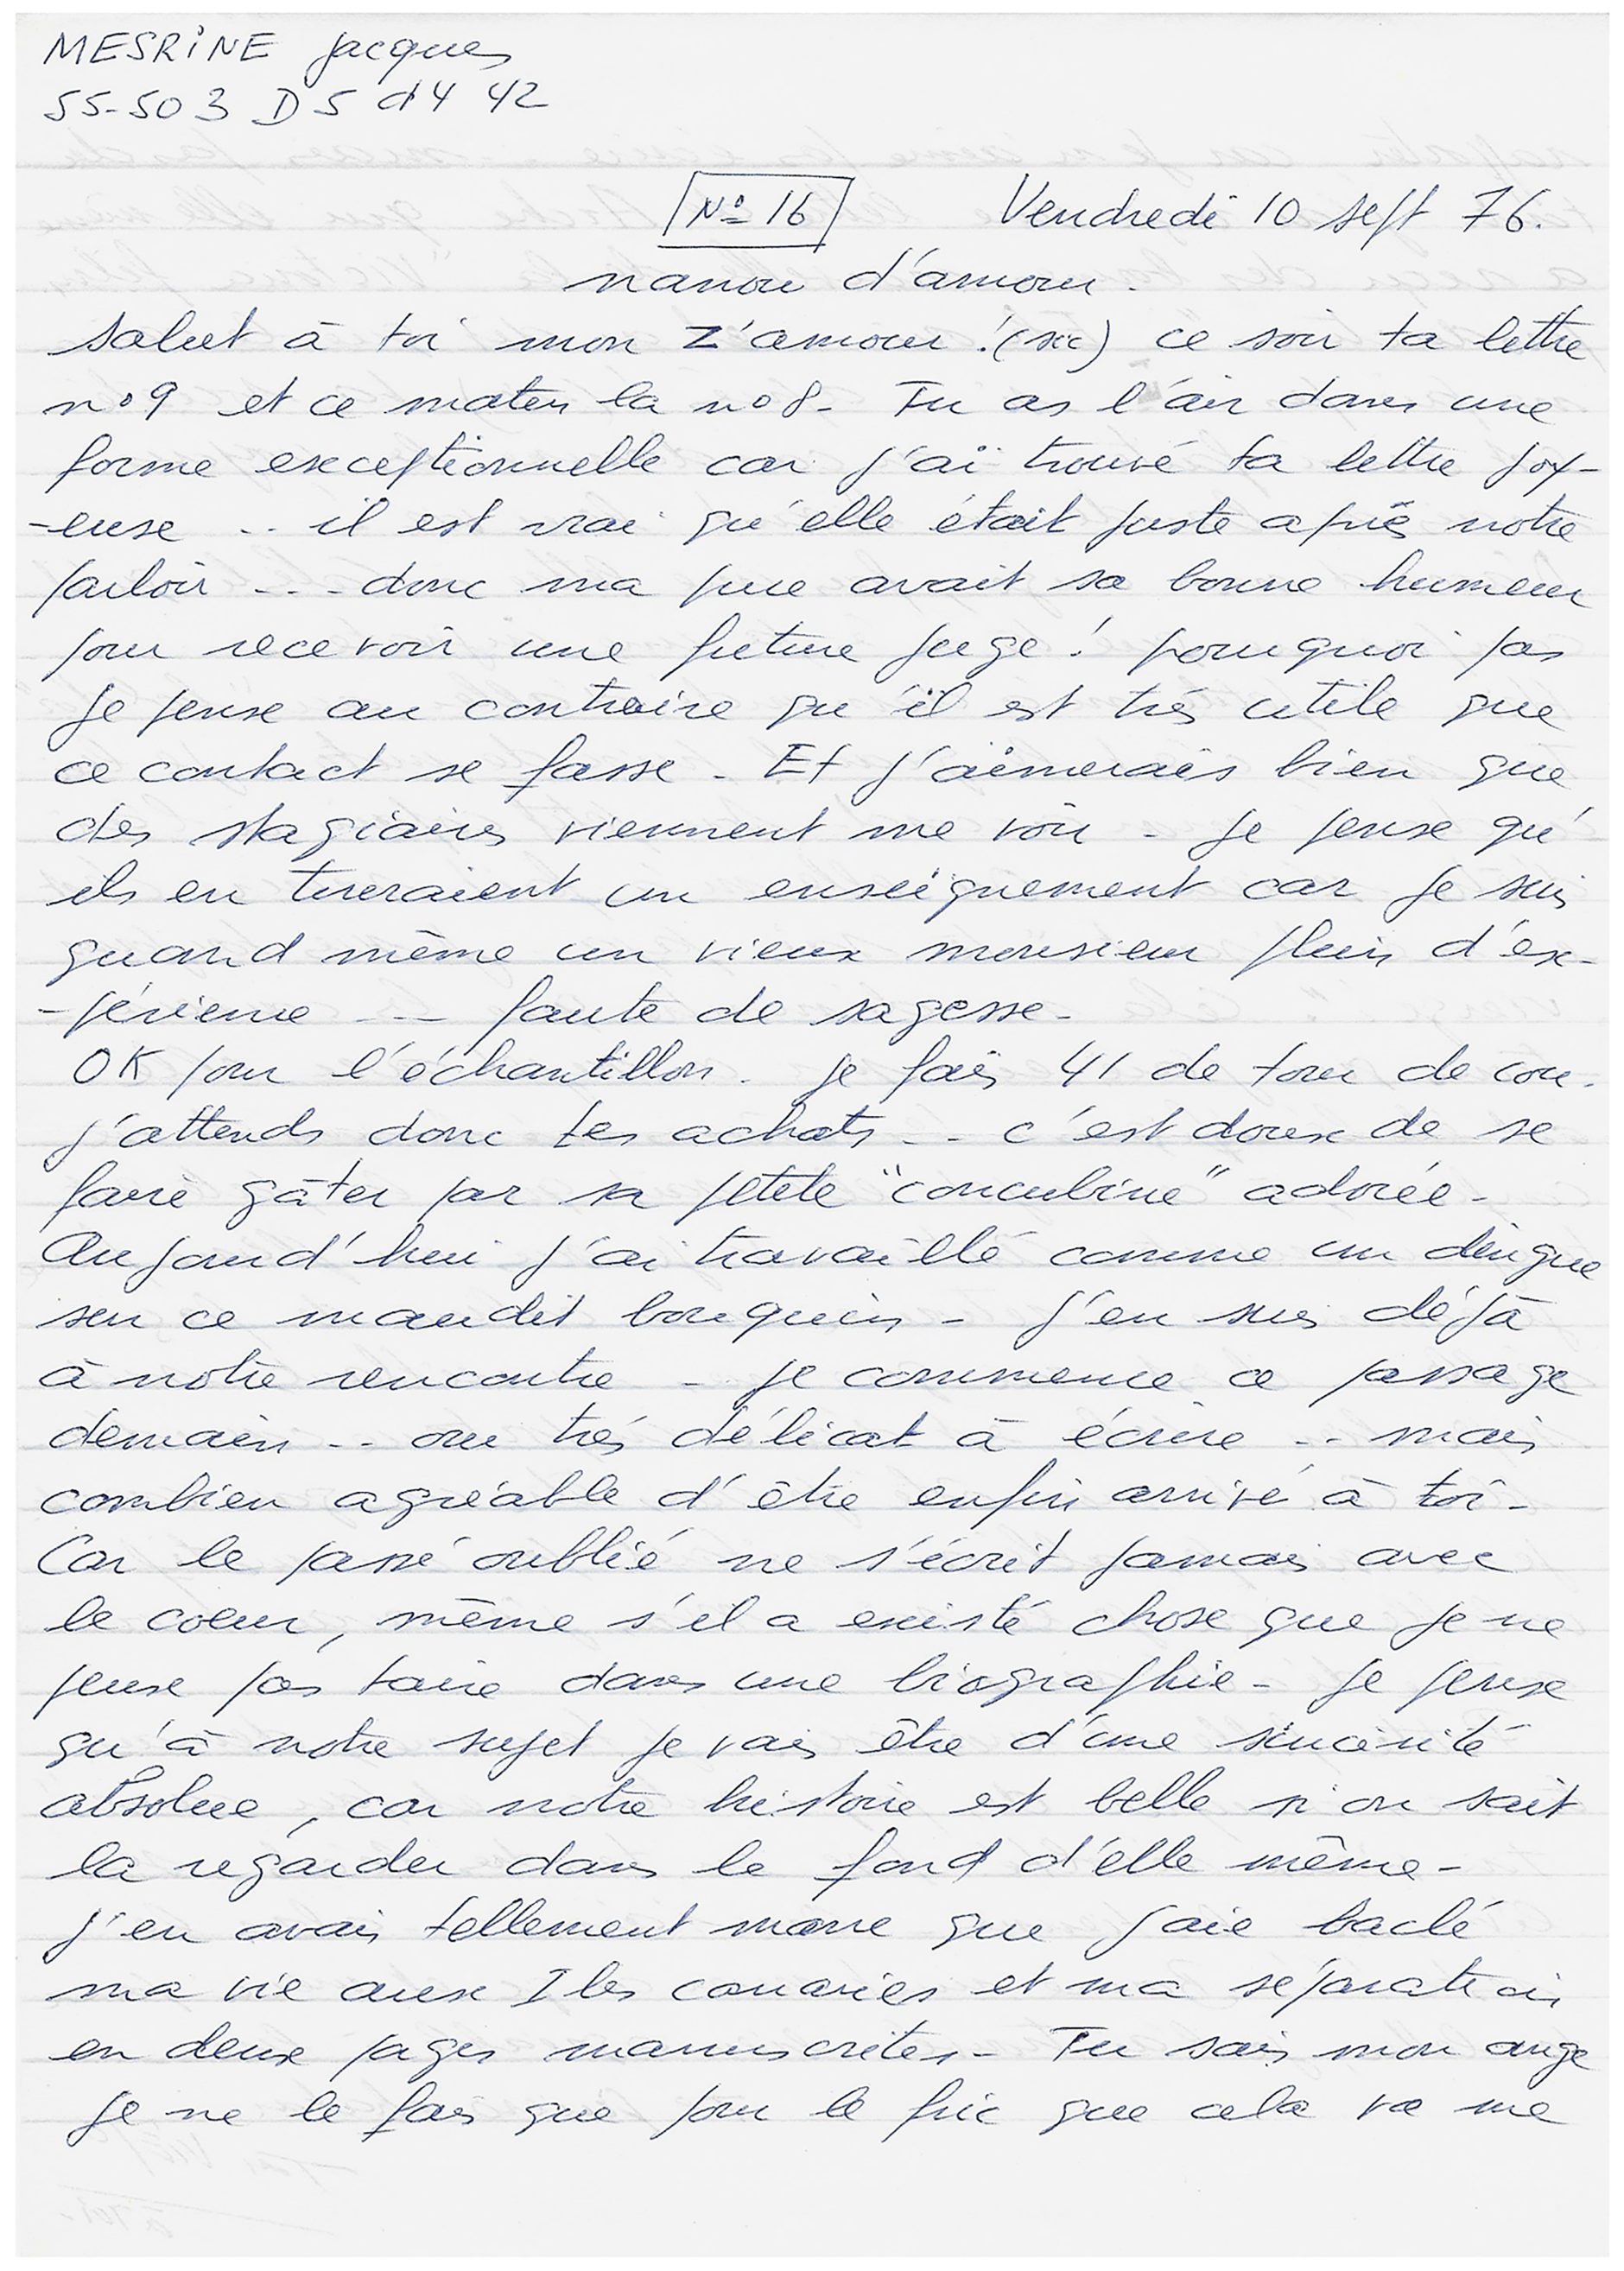 MESRINE Jacques
55-503 D5 d4 42
N° 16 Vendredi 10 sept 76.
nanou d'amour.
Salut à toi mon Z'amour ! (sic) ce soir ta lettre
n° 9 et ce matin la n° 8 - Tu as l'air dans une
forme exceptionnelle car j'ai trouvé ta lettre joy-
-euse .. il est vrai qu'elle était juste après notre
parloir ... donc ma puce avait sa bonne humeur
pour recevoir une future juge ! pourquoi pas
je pense au contraire qu'il est très utile que
ce contact se fasse - Et j'aimerais bien que
des stagiaires viennent me voir - je pense qu'
ils en tireraient un enseignement car je suis
quand même un vieux monsieur plein d'ex-
-périence --- faute de sagesse -
OK pour l'échantillon. je fais 41 de tour de cou.
j'attends donc tes achats -- c'est doux de se
faire gâter par sa petite "concubine" adorée -
Aujourd'hui j'ai travaillé comme un dingue
sur ce maudit bouquin - j'en suis déjà
à notre rencontre - je commence ce passage
demain .. oui très délicat à écrire .. mais
combien agréable d'être enfin arrivé à toi -
Car le passé oublié ne s'écrit jamais avec
le coeur, même s'il a existé chose que je ne
peux pas taire dans une biographie - je pense
qu'à notre sujet je vais être d'une sincérité
absolue, car notre histoire est belle si on sait
la regarder dans le fond d'elle même -
j'en avais tellement marre que j'aie baclé
ma vie aux Iles canaries et ma séparation
en deux pages manuscrites - Tu sais mon ange
je ne le fais que pour le fric que cela va me